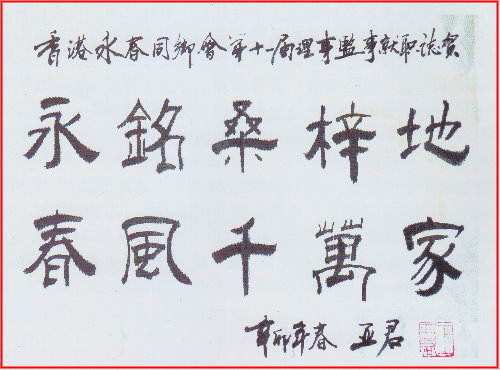 香港永春同鄉會第十一屆理事監事就职誌賀
永銘桑梓地
春風千萬家
辛卯年春 亚君